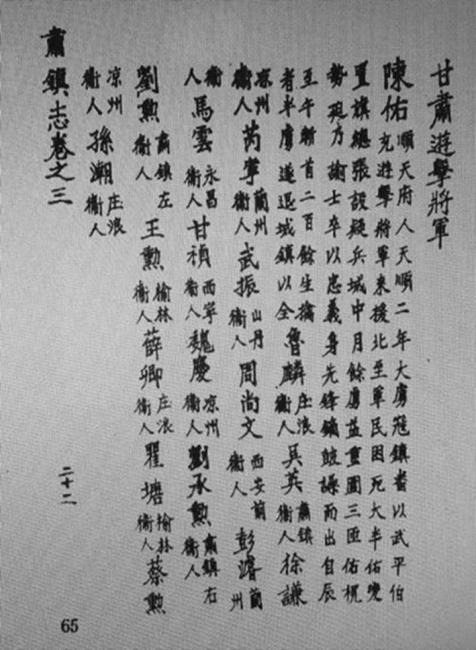 甘肅遊擊將軍
陳佑順天府人天順二年大虜寇鎮者以武平伯
充遊擊將軍來援北至軍民困死大半佑變
置旗總張設疑兵城中月餘虜益重圍三匝佑
勢乃諭士卒以忠義身先鋒鏑鼓譟而出自辰
至午斬首二百餘生擒者半虜遂退城鎮以全魯麟庄浪衞人吳英肅鎮衞人徐謙
凉州衞人芮寧蘭州衞人武振山丹衞人周尚文西安前衞人彭濬蘭州
衞人馬雲永昌衞人甘禎西寧衞人魏慶凉州衞人劉承勲肅鎮右衞人
劉勲肅鎮左衞人王勲榆林衞人薛卿庄浪衞人瞿塘榆林衞人蔡勲
凉州衞人孫瀚庄浪衞人
肅鎮志卷之三
二十二
65